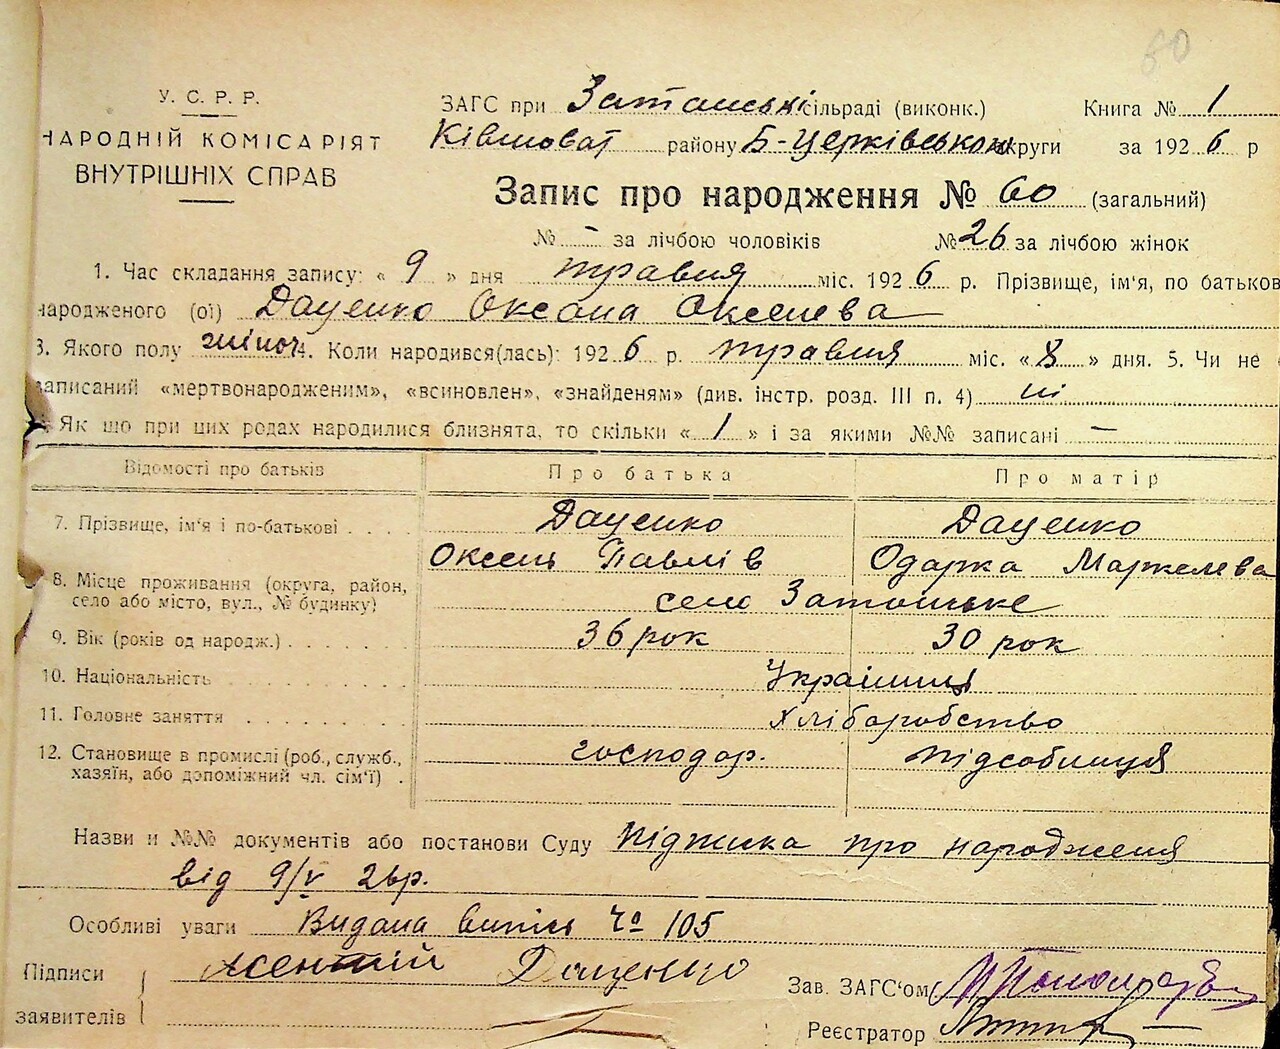 60
У. С. Р. Р.
НАРОДНІЙ КОМІСАРІЯТ
ВНУТРІШНІХ СПРАВ
ЗАГС при Затонські сільраді (виконк.) Книга № 1
Ківшоват району Б-Церківською округи за 1926 р
Запис про народження № 60 (загальний)
№ - за лічбою чоловіків № 26 за лічбою жінок
1. Час складання запису: « 9 » дня травня міс. 1926 р. Прізвище, ім'я, по батьков
народженого (ої) Даценко Оксана Оксенева
3. Якого полу жіноч 4. Коли народився(лась): 1926 р. травня міс. « 8 » дня. 5. Чи не
записаний «мертвонародженим», «всиновлен», «знайденям» (див. інстр. розд. III п. 4) ні
Як що при цих родах народилися близнята, то скільки « 1 » і за якими №№ записані —
Відомості про батьків Про батька Про матір
7. Прізвище, ім'я і по-батькові Даценко Даценко
Оксень Павлів Одарка Маркелева
8. Місце проживання (округа, район, село або місто, вул., № будинку) село Затонське
9. Вік (років од народж.) 36 рок 30 рок
10. Національність Українці
11. Головне заняття Хліборобство
12. Становище в промислі (роб., служб., хазяїн, або допоміжний чл. сім'ї) господар. підсобниця
Назви и №№ документів або постанови Суду Підписка про народження
від 9/V 26р.
Особливі уваги Видана випись № 105
Підписи Даценко
заявителів
Зав. ЗАГС'ом
Реєстратор